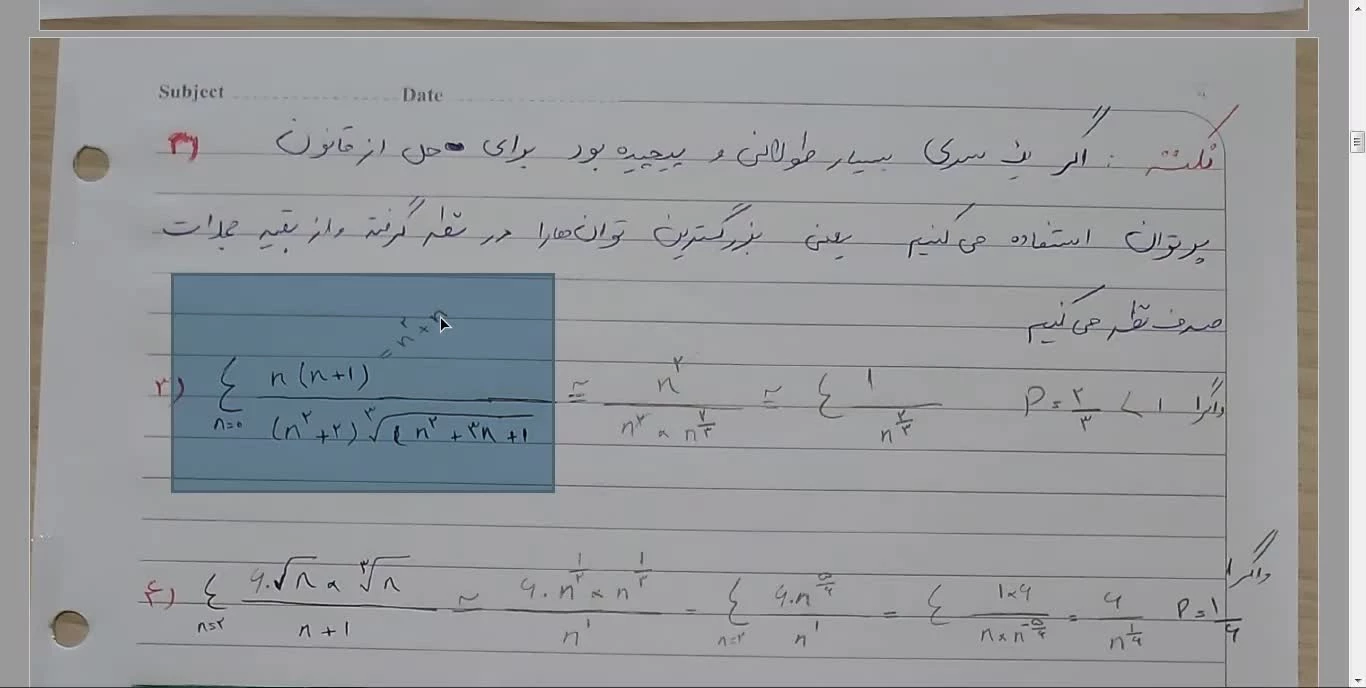 Subject Date
نکته : اگر یک سری بسیار طولانی و پیچیده بود برای حل از قانون
پرتوان استفاده می کنیم یعنی بزرگترین توان ها را در نظر گرفته و از بقیه جملات
صرف نظر می کنیم
۳) Σ n=0 n(n+1) / (n^۲+۲) ∛(n^۲+۳n+1) ≃ n^۲ / n^۲ × n^(۲/۳) ≃ Σ 1 / n^(۲/۳) P = ۲/۳ < 1 واگرا
= n^۲ × n
۴) Σ n=۲ ۹.√n × ∛n / n+1 ~ ۹.n^(1/۲) × n^(1/۳) / n^1 = Σ n=۲ ۹.n^(۵/۶) / n^1 = Σ 1×۹ / n×n^(-۵/۶) = ۹ / n^(1/۶) P = 1/۶ واگرا